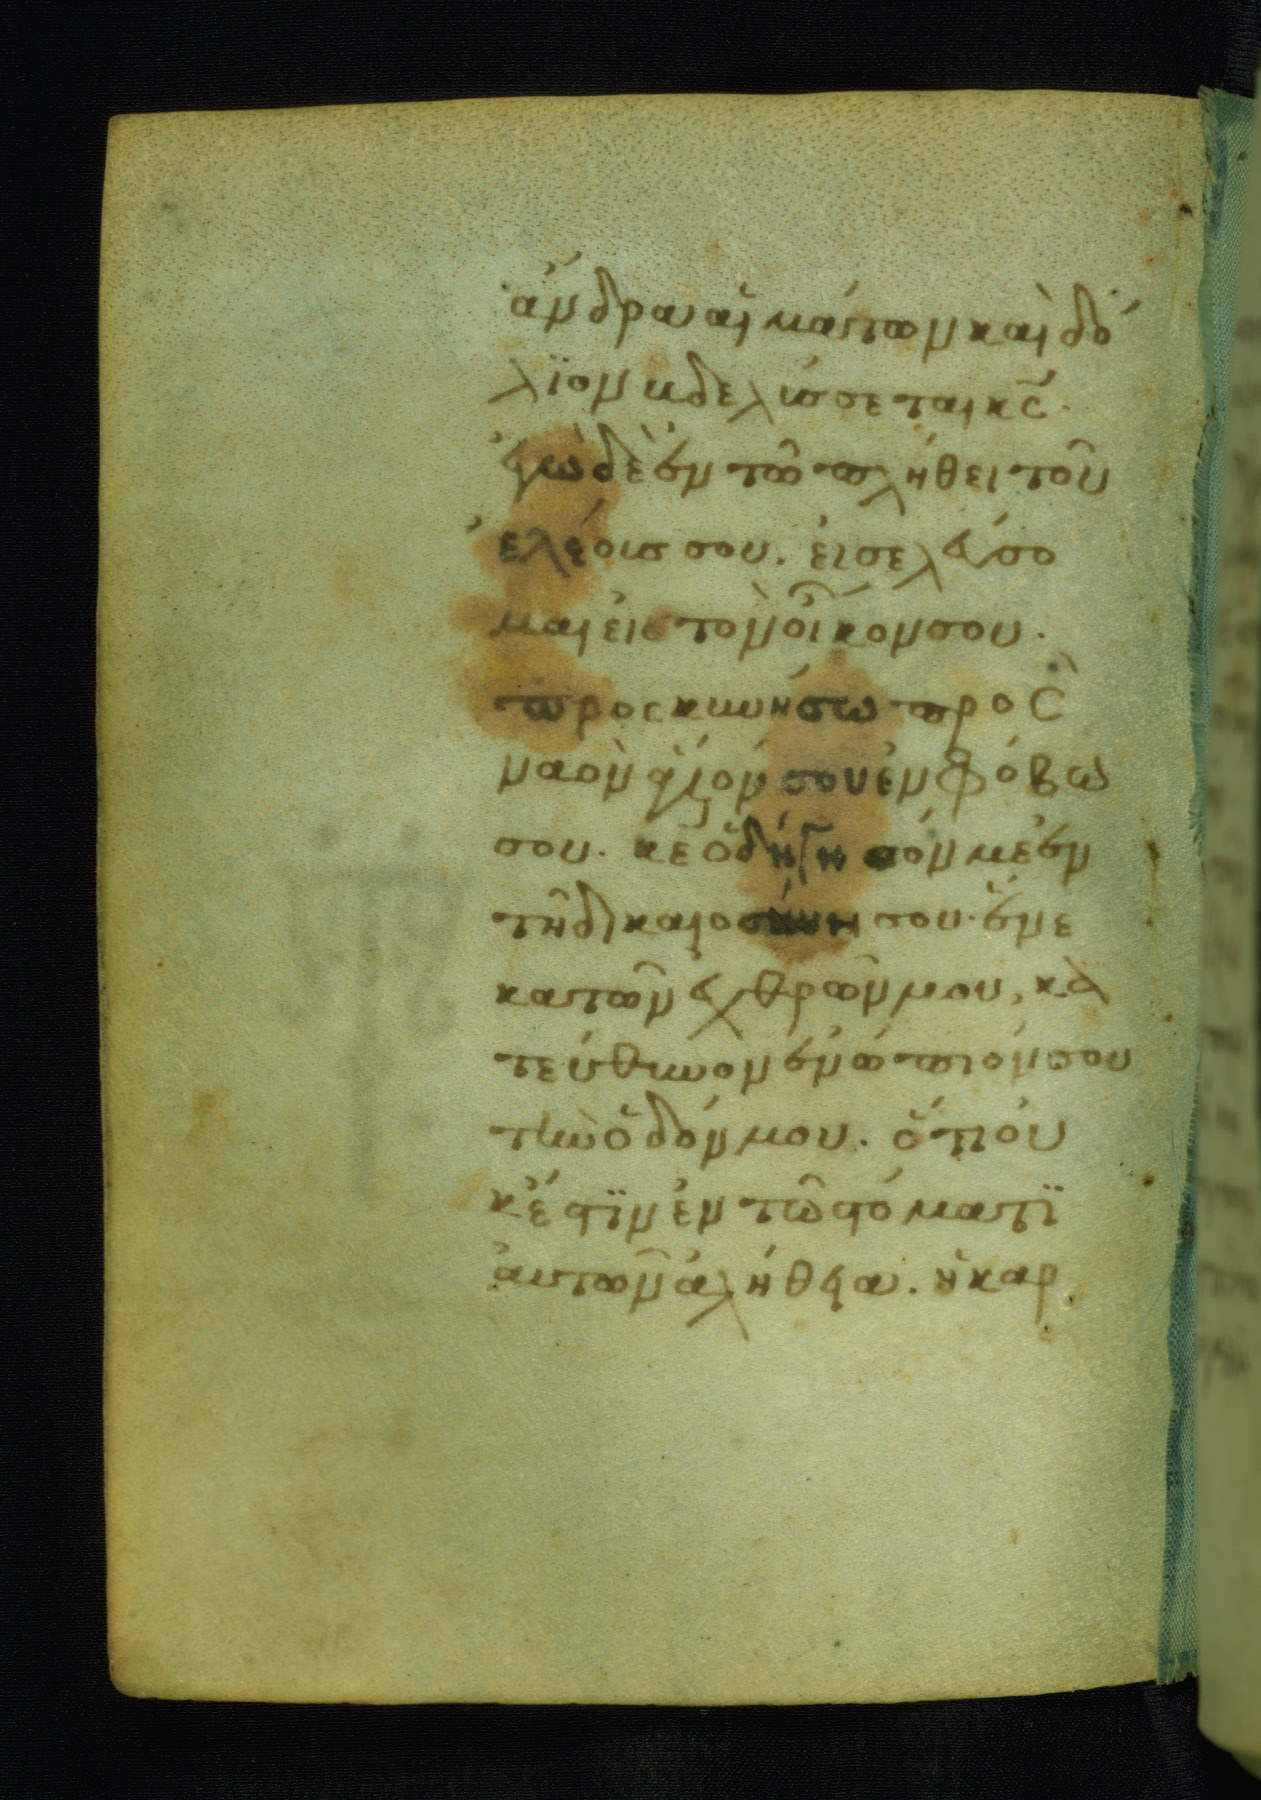 ἄνδρα αἱμάτων καὶ δό
λϊον βδελύσσεται κ̅ς̅.
ἐγὼ δὲ ἐν τῶ πλήθει τοῦ
ἐλέους σου. εἰσελεύσο
μαι εἰς τὸν οἶκον σου.
προσκυνήσω πρὸς
ναὸν ἅγιόν σου ἐν φόβω
σου. κ̅ε̅ ὁδήγησόν με ἐν
τῆ δικαιοσύνη σου. ἕνε
κα τῶν ἐχθρῶν μου, κα
τεύθυνον ἐνώπιόν σου
τὴν ὁδόν μου. ὅτι οὐ
κ ἔστϊν ἐν τῶ στόματϊ
ἀυτῶν ἀλήθεια. ἡ καρ